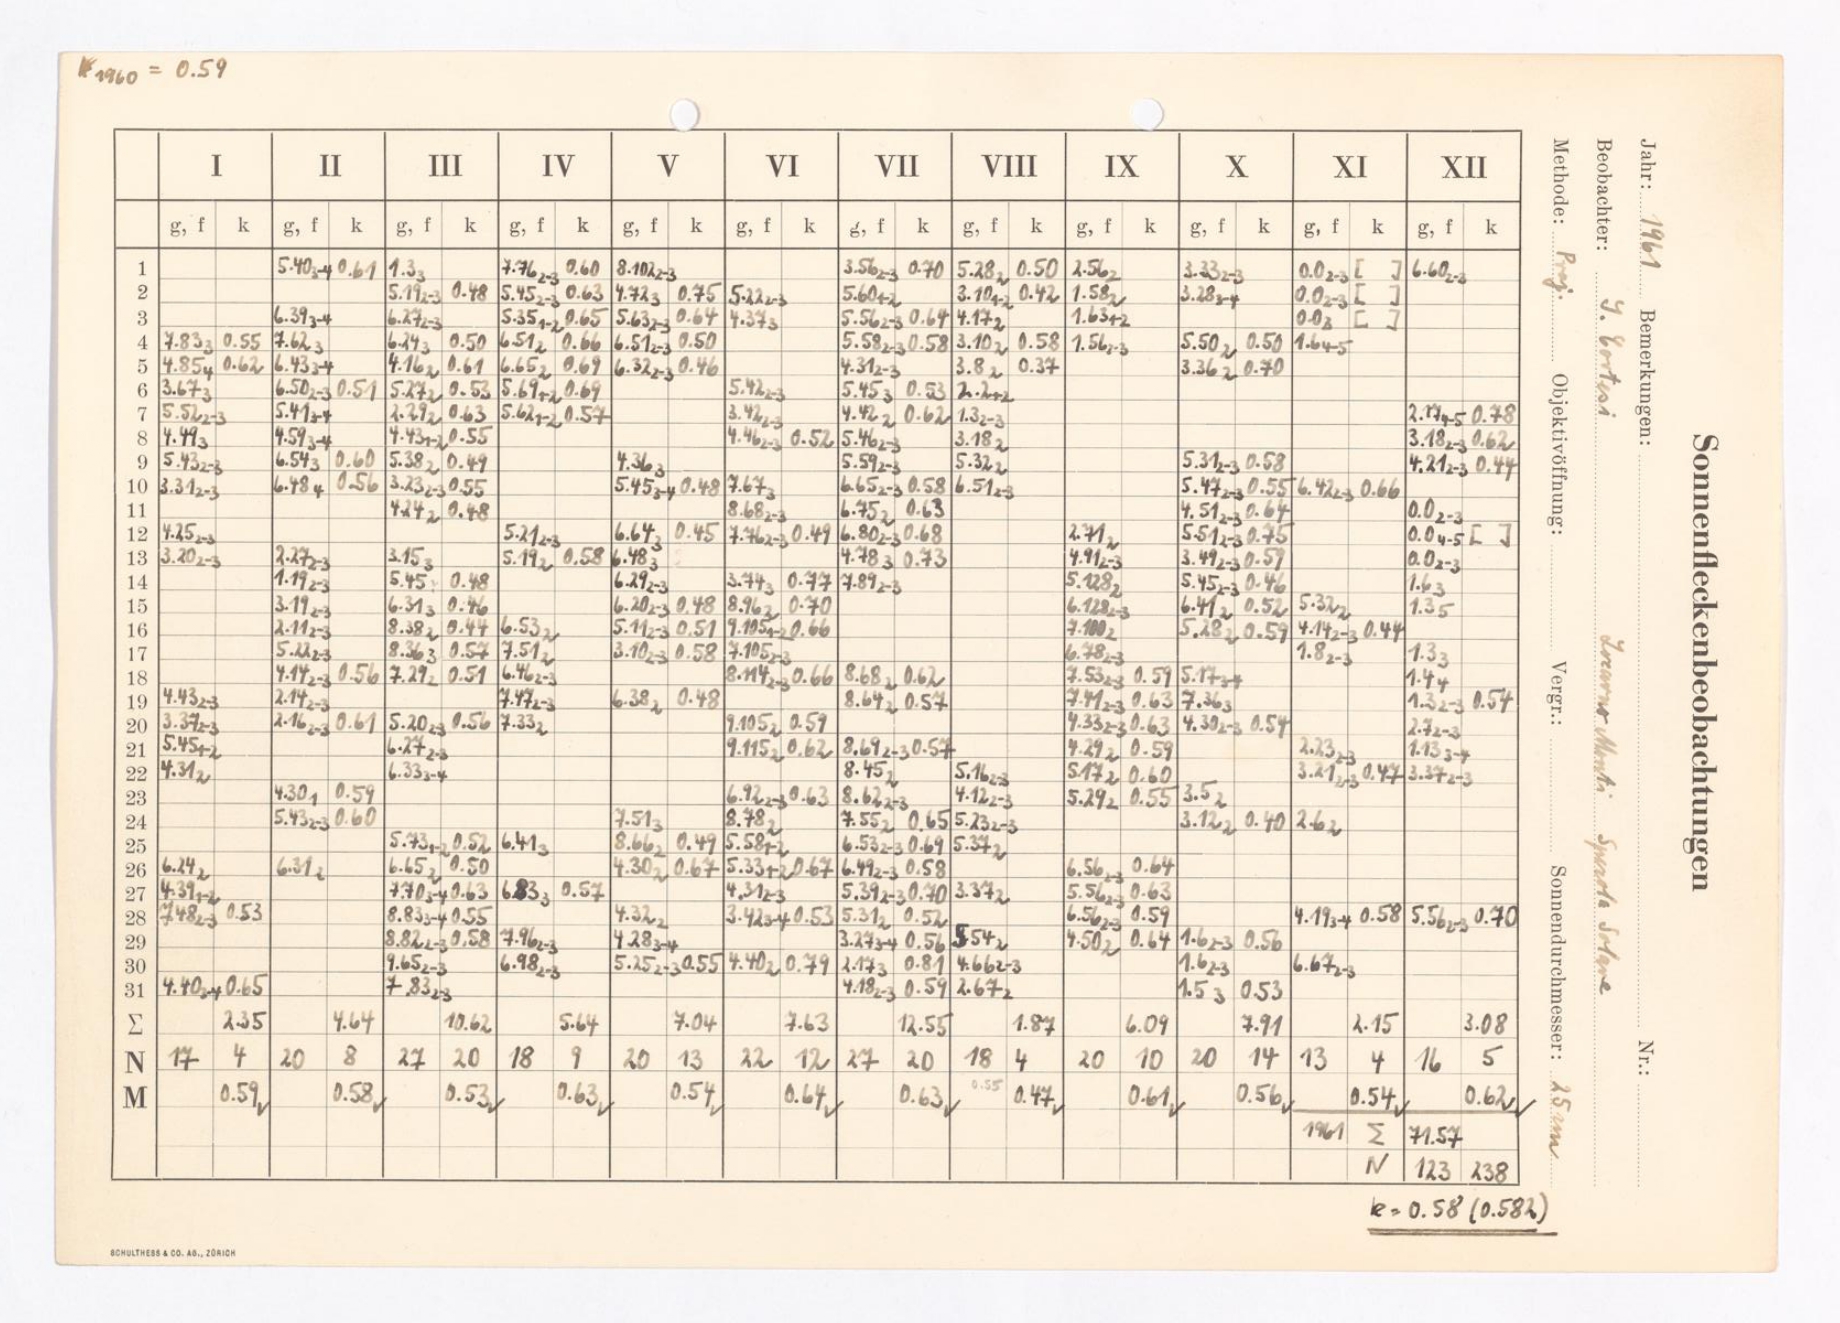 k 1960 = 0.59
Sonnenfleckenbeobachtungen
Jahr: 1961 Bemerkungen: Nr.:
Beobachter: S. Cortesi Locarno Monti Specola Solare
Methode: Proj. Objektivöffnung: Vergr.: Sonnendurchmesser: 25 cm
I II III IV V VI VII VIII IX X XI XII
g, f k g, f k g, f k g, f k g, f k g, f k g, f k g, f k g, f k g, f k g, f k g, f k
1 5.40 3-4 0.61 1.3 3 7.76 2-3 0.60 8.102 2-3 3.56 2-3 0.70 5.28 2 0.50 2.56 2 3.33 2-3 0.0 2-3 [ ] 6.60 2-3
2 5.19 2-3 0.48 5.45 2-3 0.63 4.72 3 0.75 5.22 2-3 5.60 1-2 3.10 1-2 0.42 1.58 2 3.28 3-4 0.0 2-3 [ ]
3 6.39 3-4 6.27 2-3 5.35 1-2 0.65 5.63 2-3 0.64 4.37 3 5.56 2-3 0.64 4.17 2 1.63 1-2 0.0 3 [ ]
4 7.83 3 0.55 7.62 3 6.24 3 0.50 6.51 2 0.66 6.51 2-3 0.50 5.58 2-3 0.58 3.10 2 0.58 1.56 2-3 5.50 2 0.50 1.6 4-5
5 4.85 4 0.62 6.43 3-4 4.16 2 0.61 6.65 2 0.69 6.32 2-3 0.46 4.31 2-3 3.8 2 0.37 3.36 2 0.70
6 3.67 3 6.50 2-3 0.51 5.27 2 0.53 5.69 1-2 0.69 5.42 2-3 5.45 3 0.53 2.2 1-2
7 5.52 2-3 5.41 3-4 2.29 2 0.63 5.62 1-2 0.57 3.42 2-3 4.42 2 0.62 1.3 2-3 2.17 4-5 0.78
8 4.49 3 4.59 3-4 4.43 1-2 0.55 4.46 2-3 0.52 5.46 2-3 3.18 2 3.18 2-3 0.62
9 5.43 2-3 6.54 3 0.60 5.38 2 0.49 4.36 3 5.59 2-3 5.32 2 5.31 2-3 0.58 4.21 2-3 0.44
10 3.31 2-3 6.48 4 0.56 3.23 2-3 0.55 5.45 3-4 0.48 7.67 3 6.65 2-3 0.58 6.51 2-3 5.47 2-3 0.55 6.42 2-3 0.66
11 4.24 2 0.48 8.68 2-3 6.75 2 0.63 4.51 2-3 0.64 0.0 2-3
12 4.25 2-3 5.21 2-3 6.64 3 0.45 7.76 2-3 0.49 6.80 2-3 0.68 2.71 2 5.51 2-3 0.75 0.0 4-5 [ ]
13 3.20 2-3 2.27 2-3 3.15 3 5.19 2 0.58 6.48 3 4.78 3 0.73 4.91 2-3 3.49 2-3 0.59 0.0 2-3
14 1.19 2-3 5.45 0.48 6.29 2-3 3.74 3 0.77 7.89 2-3 5.128 2 5.45 2-3 0.46 1.6 3
15 3.19 2-3 6.31 3 0.46 6.20 2-3 0.48 8.96 2 0.70 6.128 2-3 6.41 2 0.52 5.32 2 1.3 5
16 2.11 2-3 8.38 2 0.44 6.53 2 5.11 2-3 0.51 9.105 1-2 0.66 7.100 2 5.28 2 0.59 4.14 2-3 0.44
17 5.22 2-3 8.36 3 0.57 7.51 2 3.10 2-3 0.58 7.105 2-3 6.78 2-3 1.8 2-3 1.3 3
18 4.14 2-3 0.56 7.29 2 0.51 6.46 2-3 8.114 2-3 0.66 8.68 2 0.62 7.53 2-3 0.59 5.17 3-4 1.4 4
19 4.43 2-3 2.14 2-3 7.47 2-3 6.38 2 0.48 8.64 2 0.57 7.41 2-3 0.63 7.36 3 1.3 2-3 0.54
20 3.37 2-3 2.16 2-3 0.61 5.20 2-3 0.56 7.33 2 9.105 2 0.59 4.33 2-3 0.63 4.30 2-3 0.54 2.7 2-3
21 5.45 1-2 6.27 2-3 9.115 2 0.62 8.69 2-3 0.57 4.29 2 0.59 2.23 2-3 1.13 3-4
22 4.31 2 6.33 3-4 8.45 2 5.16 2-3 5.17 2 0.60 3.21 2-3 0.47 3.37 2-3
23 4.30 1 0.59 6.92 2-3 0.63 8.62 2-3 4.12 2-3 5.29 2 0.55 3.5 2
24 5.43 2-3 0.60 7.51 3 8.78 2 7.55 2 0.65 5.23 2-3 3.12 2 0.40 2.6 2
25 5.73 1-2 0.52 6.41 3 8.66 2 0.49 5.58 1-2 6.53 2-3 0.69 5.37 2
26 6.24 2 6.31 2 6.65 2 0.50 4.30 2 0.67 5.33 1-2 0.67 6.49 2-3 0.58 6.56 2 0.64
27 4.39 1-2 7.70 3-4 0.63 6.83 3 0.57 4.31 2-3 5.39 2-3 0.70 3.37 2 5.56 2-3 0.63
28 7.48 2-3 0.53 8.83 3-4 0.55 4.32 2 3.42 3-4 0.53 5.31 2 0.52 6.56 2-3 0.59 4.19 3-4 0.58 5.56 2-3 0.70
29 8.82 2-3 0.58 7.96 2-3 4.28 3-4 3.27 3-4 0.56 5 54 2 4.50 2 0.64 1.6 2-3 0.56
30 9.65 2-3 6.98 2-3 5.25 2-3 0.55 4.40 2 0.79 2.17 3 0.81 4.66 2-3 1.6 2-3 6.67 2-3
31 4.40 3-4 0.65 7.83 2-3 4.18 2-3 0.59 2.67 2 1.5 3 0.53
Σ 2.35 4.64 10.62 5.64 7.04 7.63 12.55 1.87 6.09 7.91 2.15 3.08
N 17 4 20 8 27 20 18 9 20 13 22 12 27 20 18 4 20 10 20 14 13 4 16 5
M 0.59 0.58 0.53 0.63 0.54 0.64 0.63 0.55 0.47 0.61 0.56 0.54 0.62
1961 Σ 71.57
N 123 238
k = 0.58 (0.582)
SCHULTHESS & CO. AG., ZÜRICH